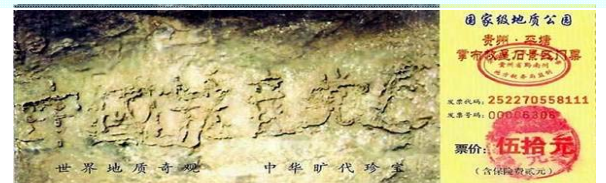 中國共産党亡
世界地质奇观 中华旷代珍宝
国家级地质公园
贵州·平塘
掌布 石景区门票
贵州省黔南州
发票代码: 252270558111
发票号码: 00006306
票价: 伍拾元
(含保险费贰元)